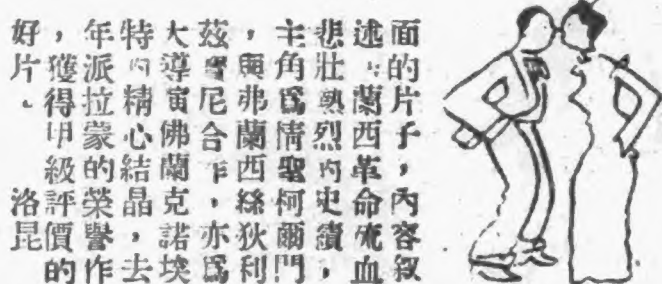 面的片子，內容叙
述法蘭西革命流血
悲壯熱烈的史績，
主角爲情聖柯爾門
，與弗蘭西絲狄利
茲寶尼合作，亦爲
大導演佛蘭克諾埃
特的精心結晶，去
年派拉蒙的榮譽作
，獲得甲級評價的
好片。 洛昆